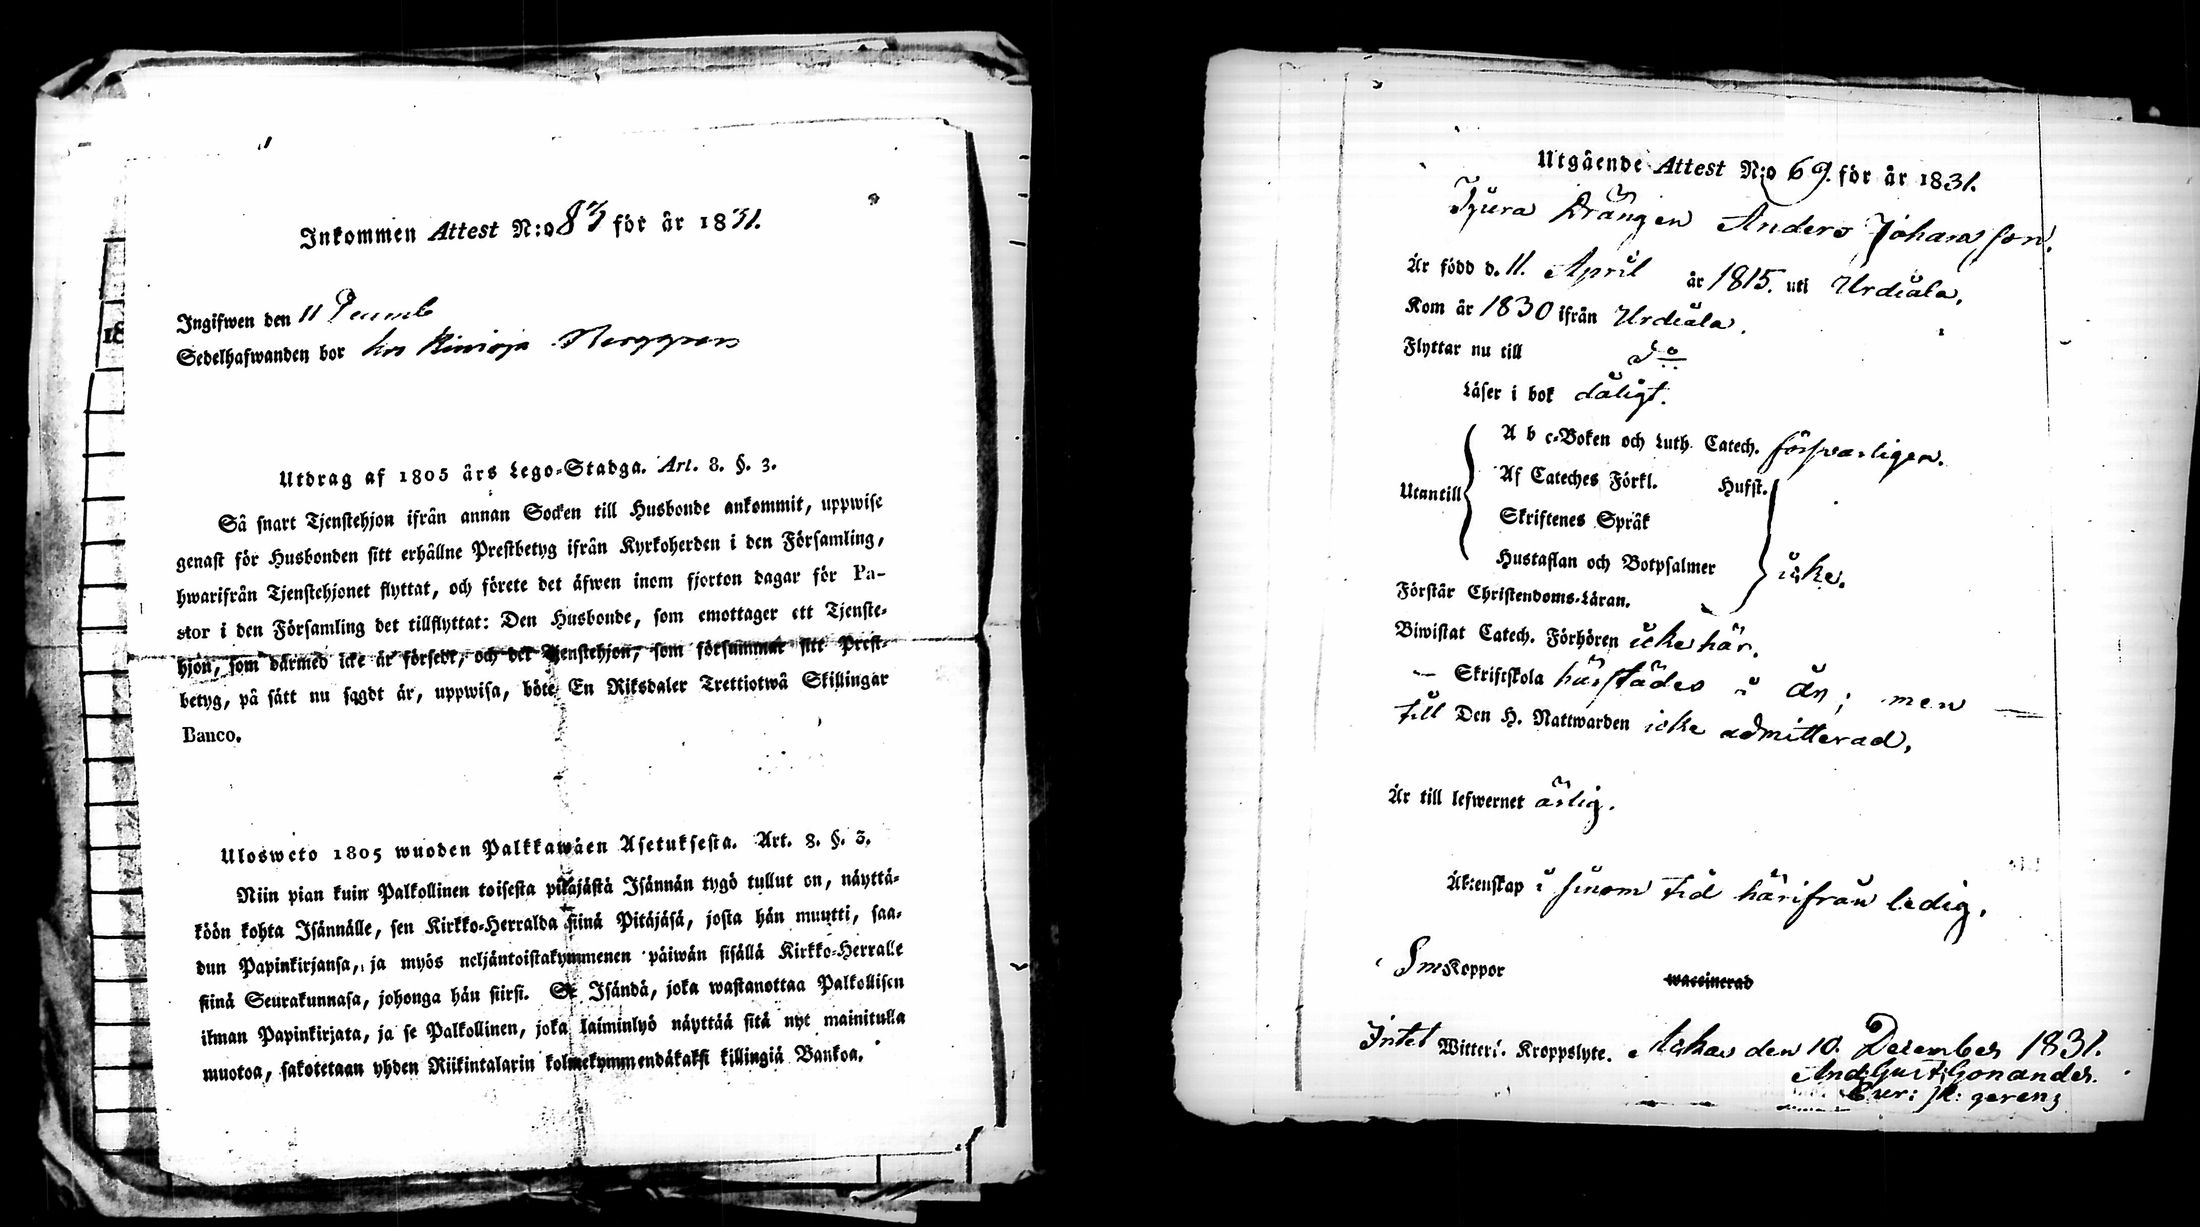 Inkommen Attest N:o 83 för år 1831.
Ingifwen den 11 Decemb
Sedelhafwanden bor hos Berggren
Utdrag af 1805 års Lego-Stadga. Art. 8. §. 3.
Så snart Tjenstehjon ifrån annan Socken till Husbonde ankommit, uppwise
genast för Husbonden sitt erhållne Prestbetyg ifrån Kyrkoherden i den Församling,
hwarifrån Tjenstehjonet flyttat, och förete det äfwen inom fjorton dagar för Pa-
stor i den Församling det tillflyttat: Den Husbonde, som emottager ett Tjenste-
hjon, som därmed icke är försedt, och det Tjenstehjon, som försummar sitt Prest-
betyg, på sätt nu sagdt är, uppwisa, böte En Riksdaler Trettiotwå Skillingar
Banco.
Ulosweto 1805 wuoden Palkkawäen Asetuksesta. Art. 8. §. 3.
Niin pian kuin Palkollinen toisesta pitäjästä Isännän tygö tullut on, näyttä-
köön kohta Isännälle, sen Kirkko-Herralda siinä Pitäjäsä, josta hän muutti, saa-
dun Papinkirjansa, ja myös neljäntoistakymmenen päiwän sisällä Kirkko-Herralle
siinä Seurakunnasa, johonga hän siirsi. Se Isändä, joka wastanottaa Palkollisen
ilman Papinkirjata, ja se Palkollinen, joka laiminlyö näyttää sitä nyt mainitulla
muotoa, sakotetaan yhden Riikintalarin kolmekymmendäkaksi killingiä Bankoa.
Utgående Attest N:o 69. för år 1831.
Drängen Anders Johansson.
Är född d. 11. April år 1815. uti Urdiala.
Kom år 1830 ifrån Urdiala.
Flyttar nu till do
Läser i bok dåligt.
A b c-Boken och Luth. Catech. försvarligen.
Af Cateches Förkl. Hufst.
Utantill
Skriftenes Språk
Hustaflan och Botpsalmer icke.
Förstår Christendoms-Läran.
Biwistat Catech. Förhören icke här.
— Skriftskola härstädes i år; men
till Den H. Nattwarden icke admitterad.
Är till lefwernet ärlig.
Äktenskap i sinom tid härifrån ledig.
Smkoppor waccinerad
Intet Witterl. Kroppslyte. Ackas den 10. December 1831.
And: Gust: Gonander.